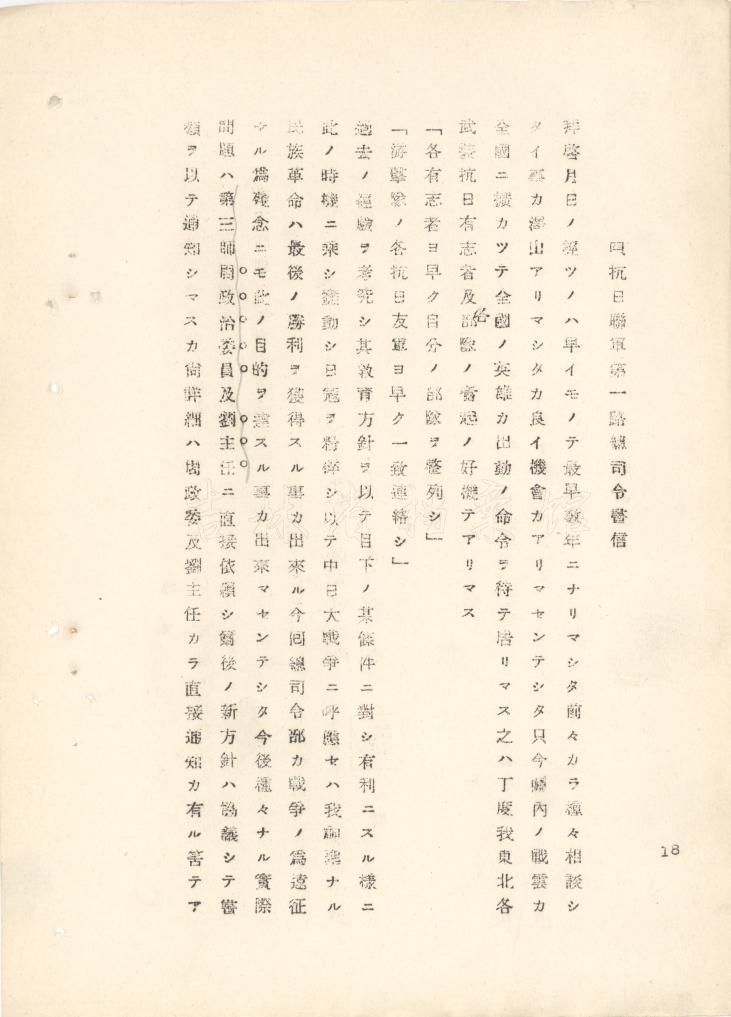 四抗日聯軍第一路總司令書信
拜啓月日ノ經ツノハ早イモノテ最早數年ニナリマシタ前々カラ種々相談シ
タイ事カ澤山アリマシタカ良イ機會カアリマセンテシタ只今關內ノ戰雲カ
全國ニ擴カツテ全國ノ英雄カ出動ノ命令ヲ待テ居リマス之ハ丁度我東北各
武裝抗日有志者及各部隊ノ奮起ノ好機テアリマス
「各有志者ヨ早ク自分ノ部隊ヲ整列シ」
「游擊隊ノ各抗日友軍ヨ早ク一致連絡シ」
過去ノ經驗ヲ考究シ其教育方針ヲ以テ目下ノ某條件ニ對シ有利ニスル樣ニ
此ノ時機ニ乘シ活動シ日寇ヲ粉碎シ以テ中日大戰爭ニ呼應セハ我神聖ナル
民族革命ハ最後ノ勝利ヲ獲得スル事カ出來ル今回總司令部カ戰爭ノ爲遠征
セル爲殘念ニモ此ノ目的ヲ達スル事カ出來マセンテシタ今後種々ナル實際
問題ハ第三師周政治委員及劉主任ニ直接依賴シ爾後ノ新方針ハ協議シテ書
類ヲ以テ通知シマスカ尙詳細ハ周政委及劉主任カラ直接通知カ有ル筈テア
18